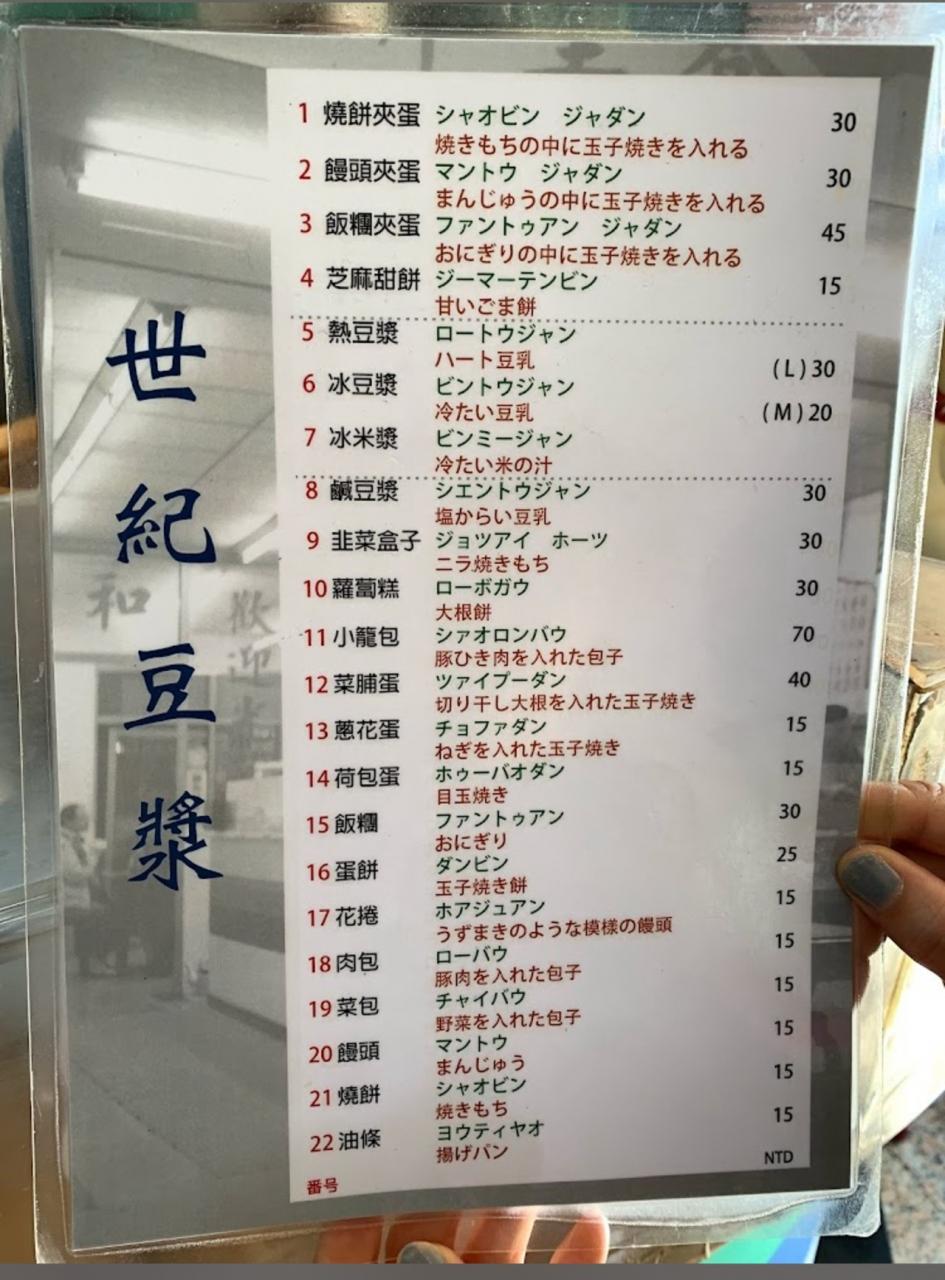 世紀豆漿
1 燒餅夾蛋 シャオビン ジャダン 30
焼きもちの中に玉子焼きを入れる
2 饅頭夾蛋 マントウ ジャダン 30
まんじゅうの中に玉子焼きを入れる
3 飯糰夾蛋 ファントゥアン ジャダン 45
おにぎりの中に玉子焼きを入れる
4 芝麻甜餅 ジーマーテンビン 15
甘いごま餅
5 熱豆漿 ロートウジャン
ハート豆乳 (L)30
6 冰豆漿 ビントウジャン
冷たい豆乳 (M)20
7 冰米漿 ビンミージャン
冷たい米の汁
8 鹹豆漿 シエントウジャン 30
塩からい豆乳
9 韭菜盒子 ジョツアイ ホーツ 30
ニラ焼きもち
10 蘿蔔糕 ローボガウ 30
大根餅
11 小籠包 シァオロンバウ 70
豚ひき肉を入れた包子
12 菜脯蛋 ツァイプーダン 40
切り干し大根を入れた玉子焼き
13 蔥花蛋 チョファダン 15
ねぎを入れた玉子焼き
14 荷包蛋 ホゥーバオダン 15
目玉焼き
15 飯糰 ファントゥアン 30
おにぎり
16 蛋餅 ダンビン 25
玉子焼き餅
17 花捲 ホアジュアン 15
うずまきのような模様の饅頭
18 肉包 ローバウ 15
豚肉を入れた包子
19 菜包 チャイバウ 15
野菜を入れた包子
20 饅頭 マントウ 15
まんじゅう
21 燒餅 シャオビン 15
焼きもち
22 油條 ヨウティヤオ 15
揚げパン
番号 NTD
和
歡迎